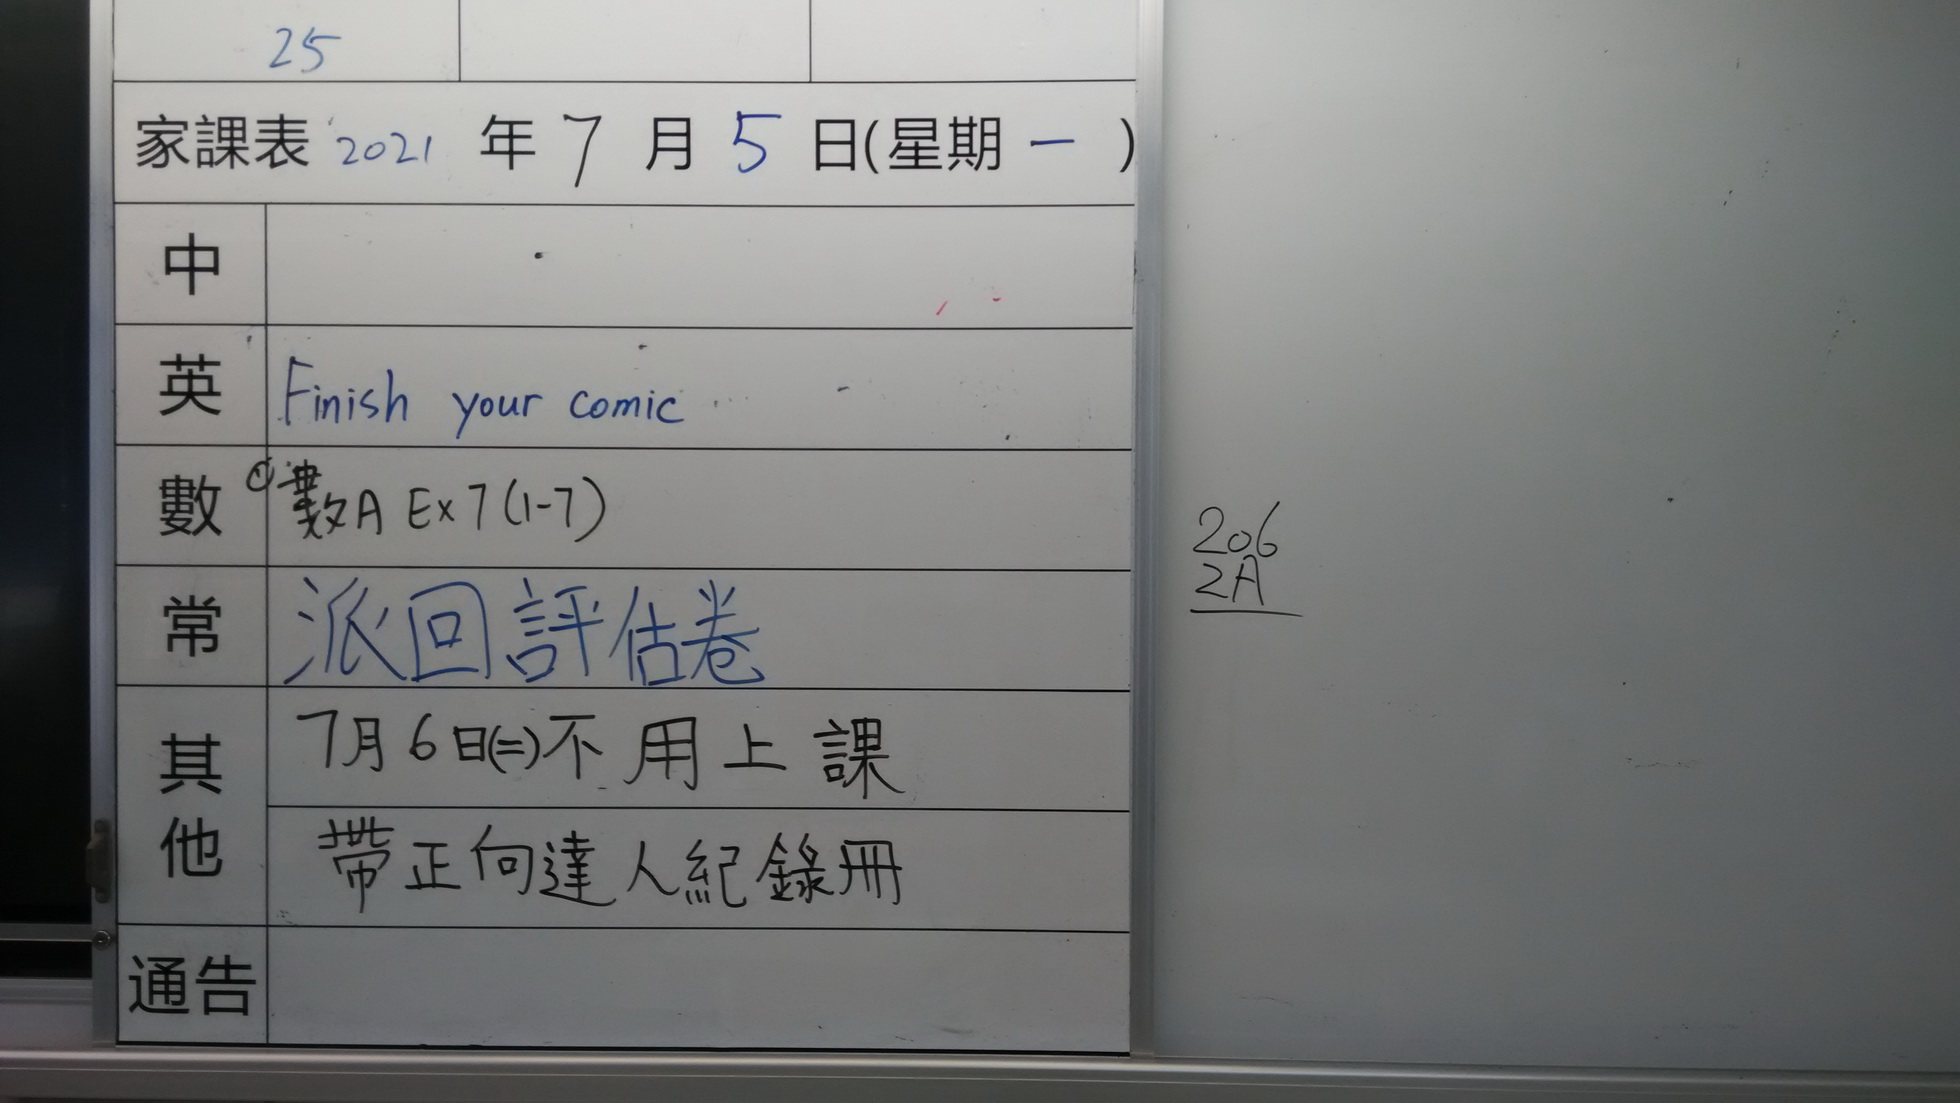 25
家課表 2021 年 7 月 5 日(星期 一 )
中
英 Finish your comic
數 ①數A Ex 7 (1-7)
常 派回評估卷
其他 7月6日(二)不用上課
帶正向達人紀錄冊
通告
206
2A